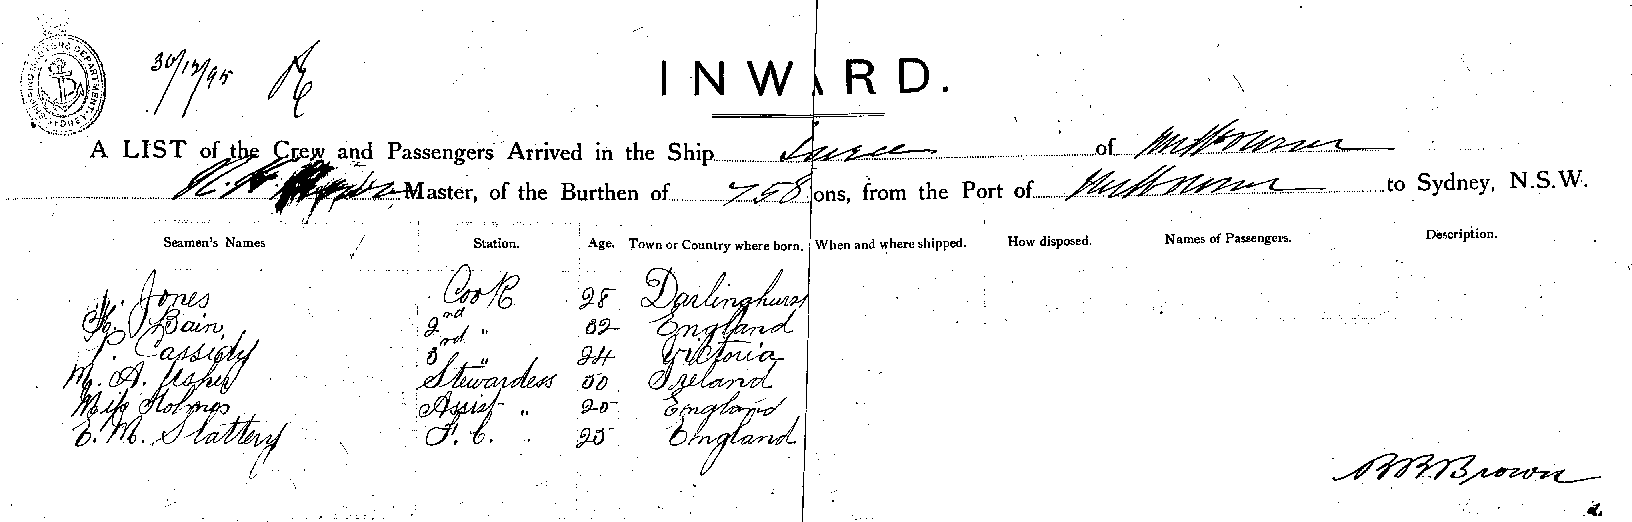 30/12/95
INWARD.
A LIST of the Crew and Passengers Arrived in the Ship of Melbourne
Master, of the Burthen of 758 ons, from the Port of Melbourne to Sydney, N.S.W.
Seamen's Names Station. Age. Town or Country where born. When and where shipped. How disposed. Names of Passengers. Description.
Jones Cook 28 Darlinghurst
Bain 2nd " 32 England
Cassidy 3rd " 24 Victoria
M. A. Usher Stewardess 50 Ireland
Holmes Assist " 25 England
E. M. Slattery F. C. 25 England
Brown